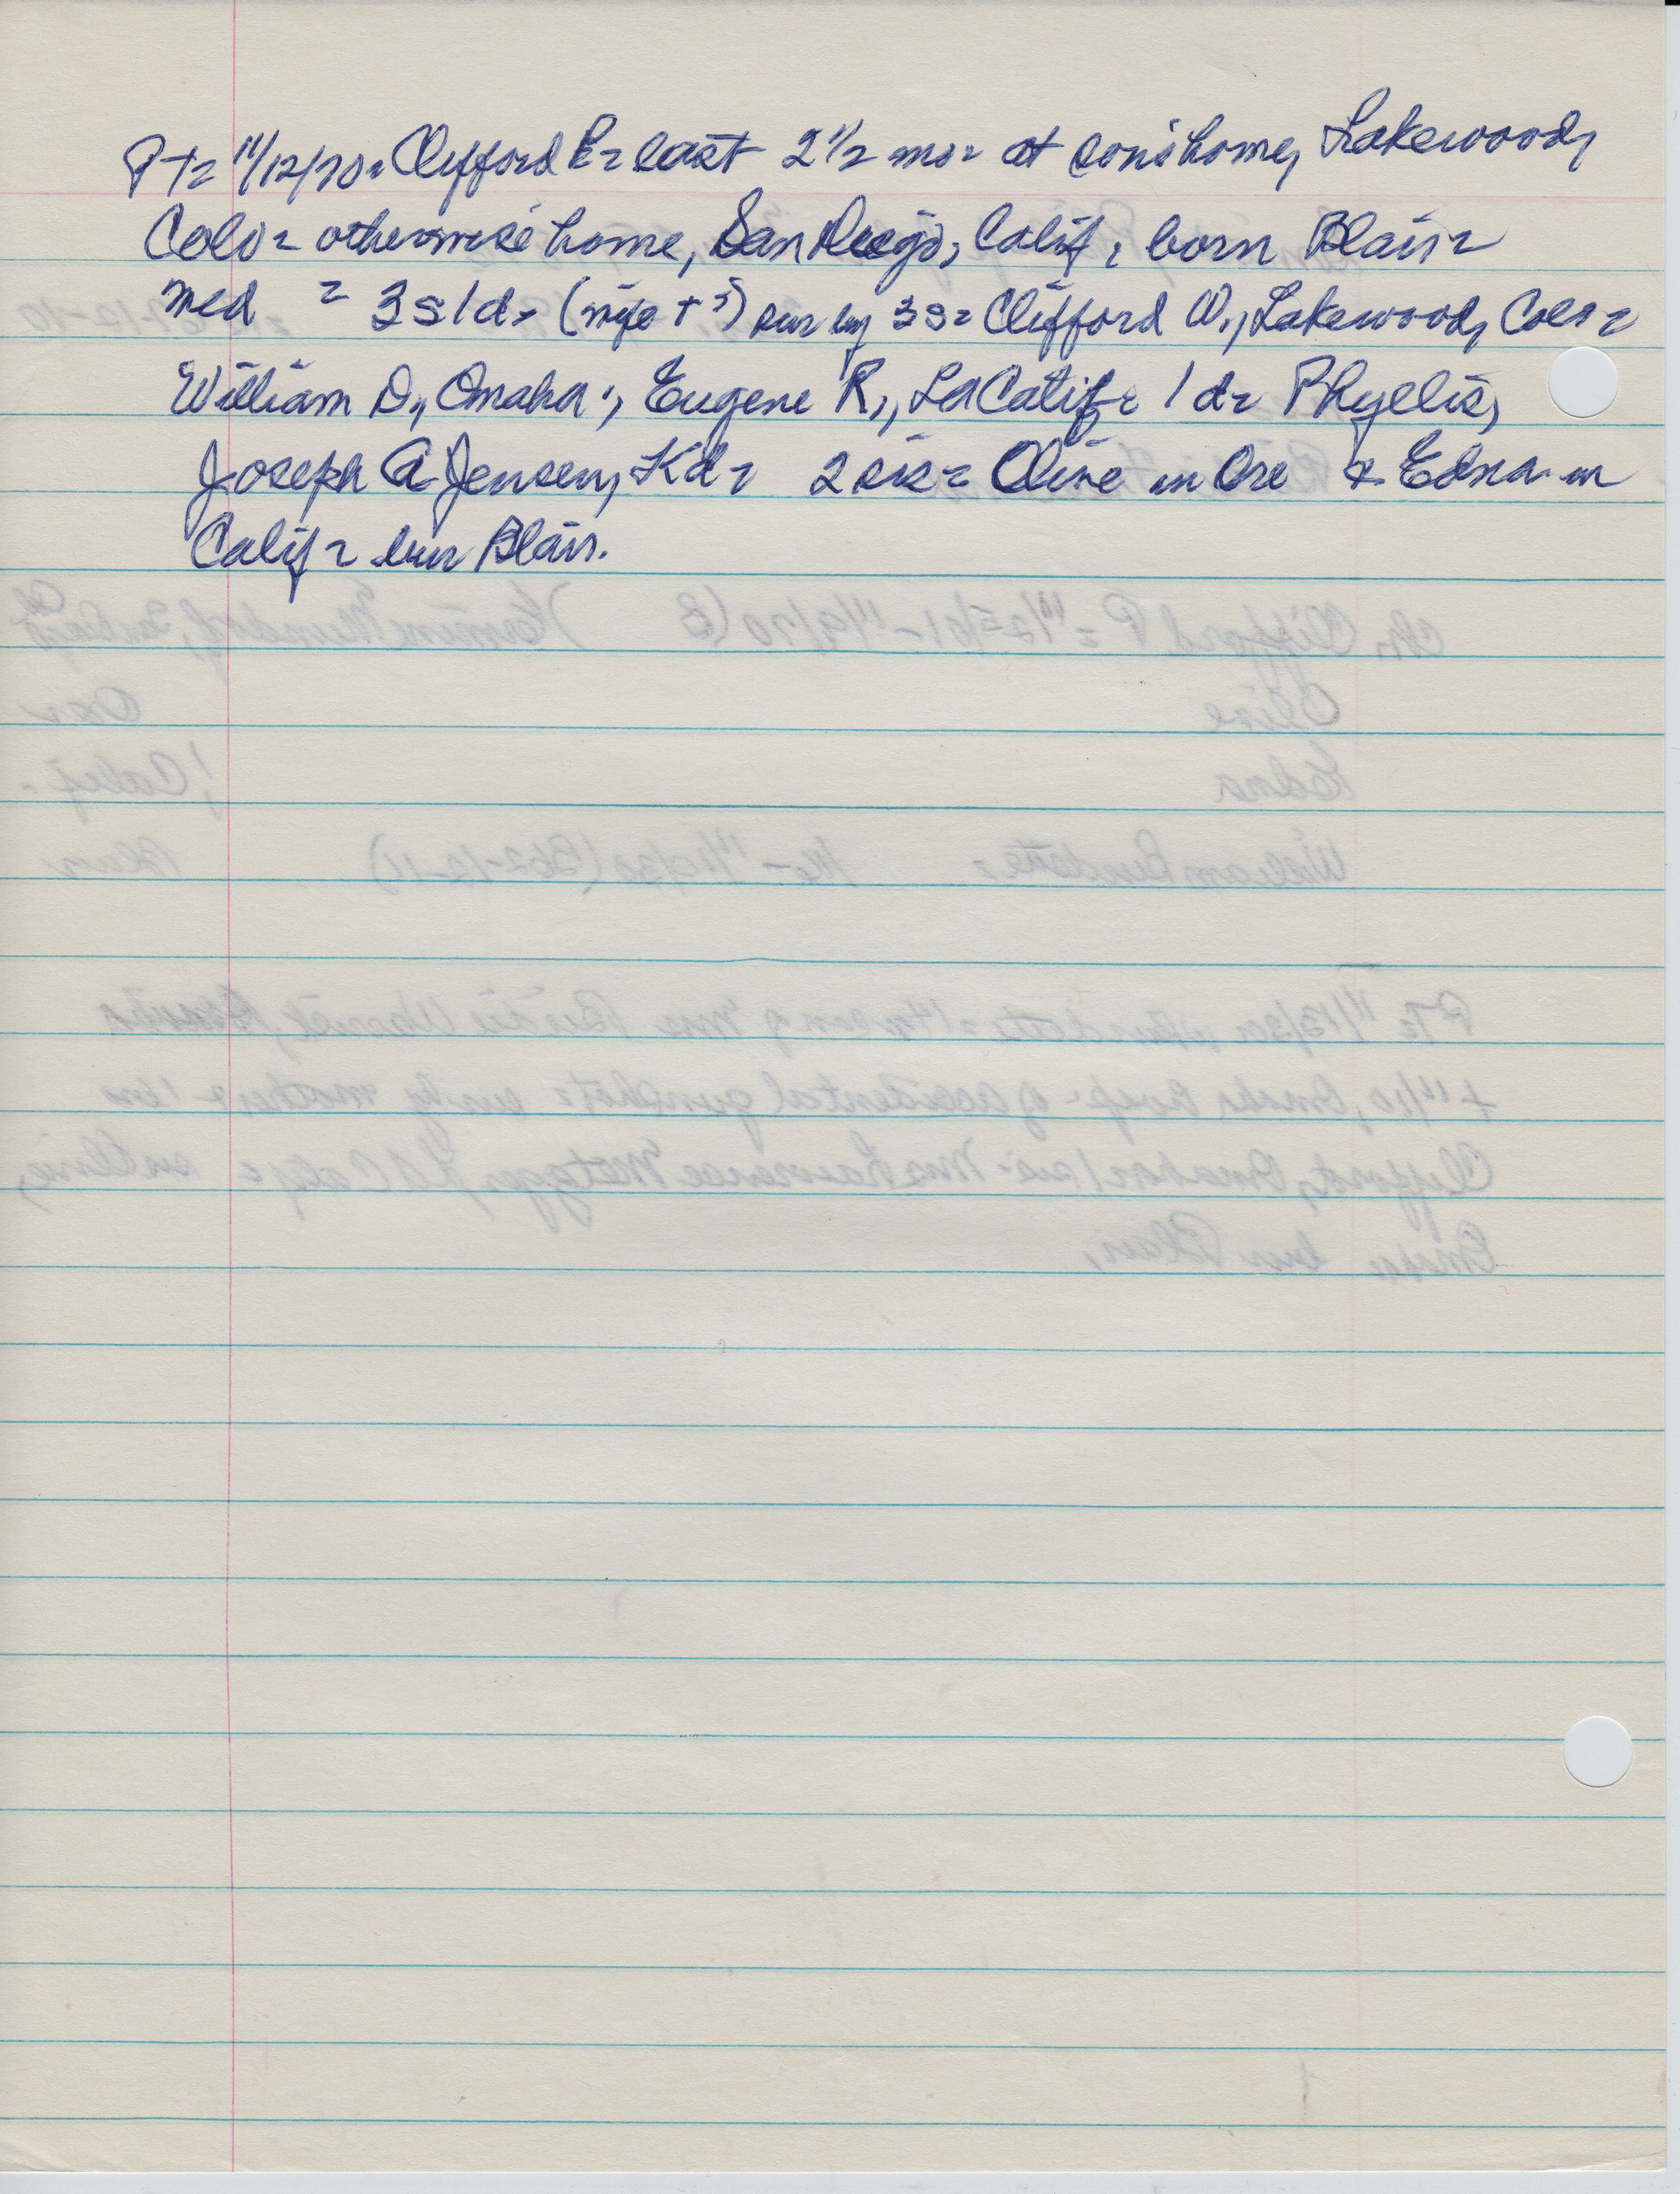 PT= 11/12/70= Clifford P= last 2 1/2 mo= at son's home, Lakewood,
Colo= otherwise home, San Diego, Calif, born Blair=
med = 3s 1d= (wife + ?) sur by 3s= Clifford W., Lakewood, Colo=
William D., Omaha; Eugene R., LA Calif= 1 d= Phyllis,
Joseph A Jensen, Kd= 2 sis= Olive in Ore & Edna in
Calif= bur Blair.